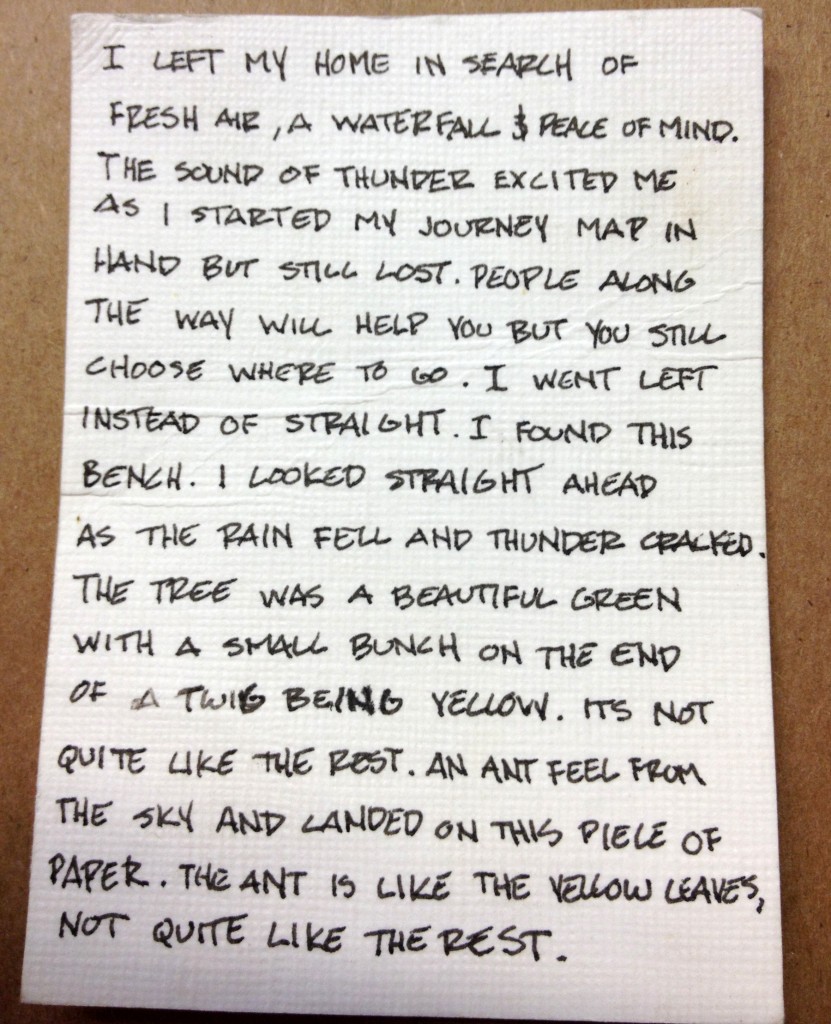 I LEFT MY HOME IN SEARCH OF
FRESH AIR, A WATERFALL & PEACE OF MIND.
THE SOUND OF THUNDER EXCITED ME
AS I STARTED MY JOURNEY MAP IN
HAND BUT STILL LOST. PEOPLE ALONG
THE WAY WILL HELP YOU BUT YOU STILL
CHOOSE WHERE TO GO. I WENT LEFT
INSTEAD OF STRAIGHT. I FOUND THIS
BENCH. I LOOKED STRAIGHT AHEAD
AS THE RAIN FELL AND THUNDER CRACKED.
THE TREE WAS A BEAUTIFUL GREEN
WITH A SMALL BUNCH ON THE END
OF A TWIG BEING YELLOW. ITS NOT
QUITE LIKE THE REST. AN ANT FEEL FROM
THE SKY AND LANDED ON THIS PIECE OF
PAPER. THE ANT IS LIKE THE YELLOW LEAVES,
NOT QUITE LIKE THE REST.